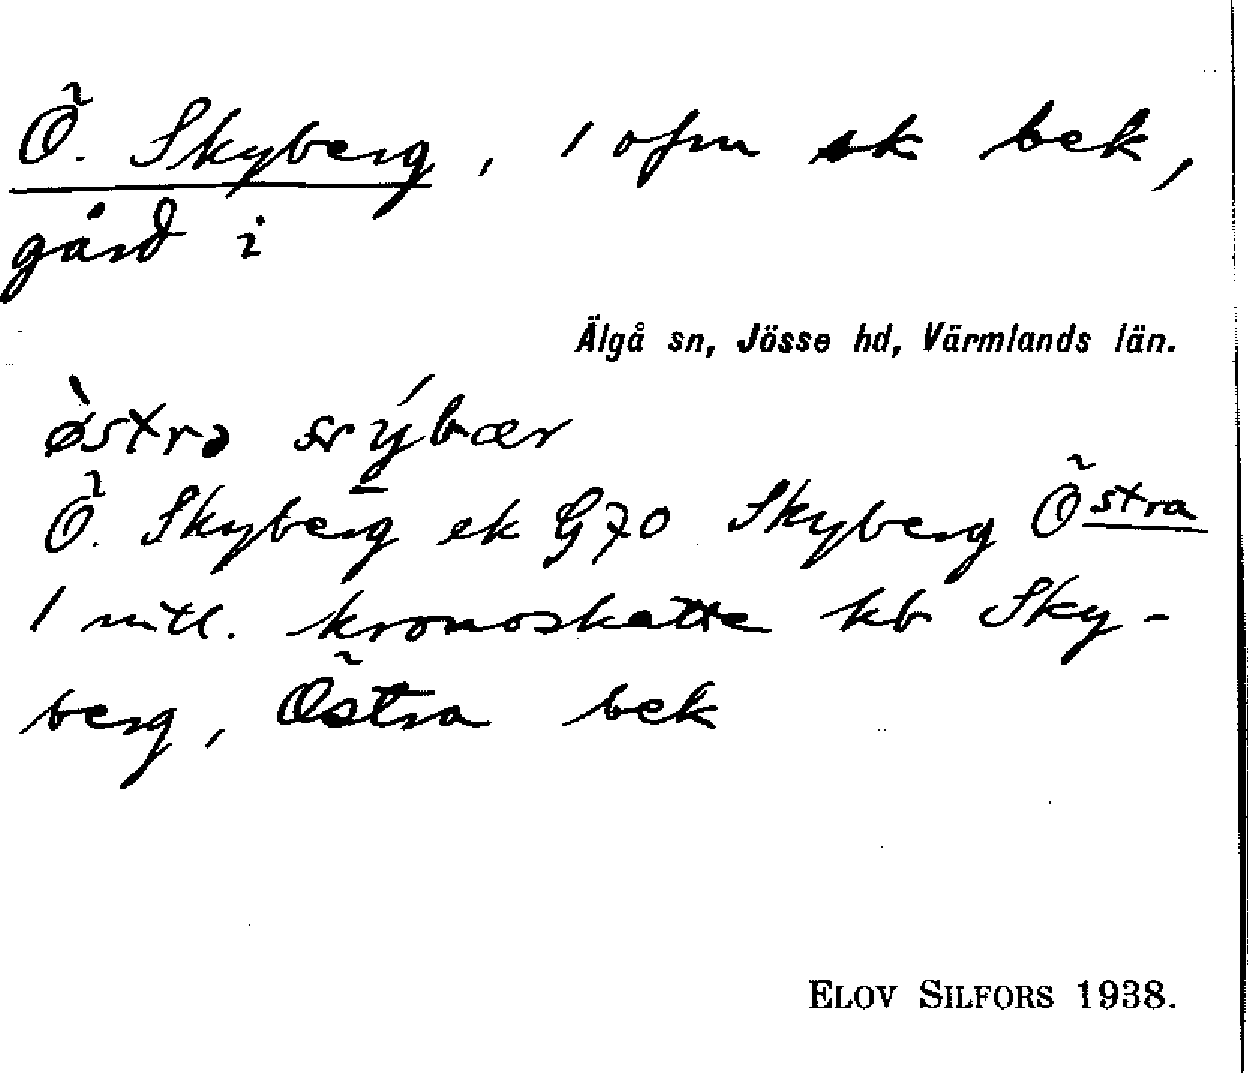 Ö. Skyberg, 1 ofm sk bek,
gård i
Älgå sn, Jösse hd, Värmlands län.
Ö. Skyberg ek G70 Skyberg Östra
1 mtl. kronoskatte kb Sky-
berg, Östra bek
ELOV SILFORS 1938.